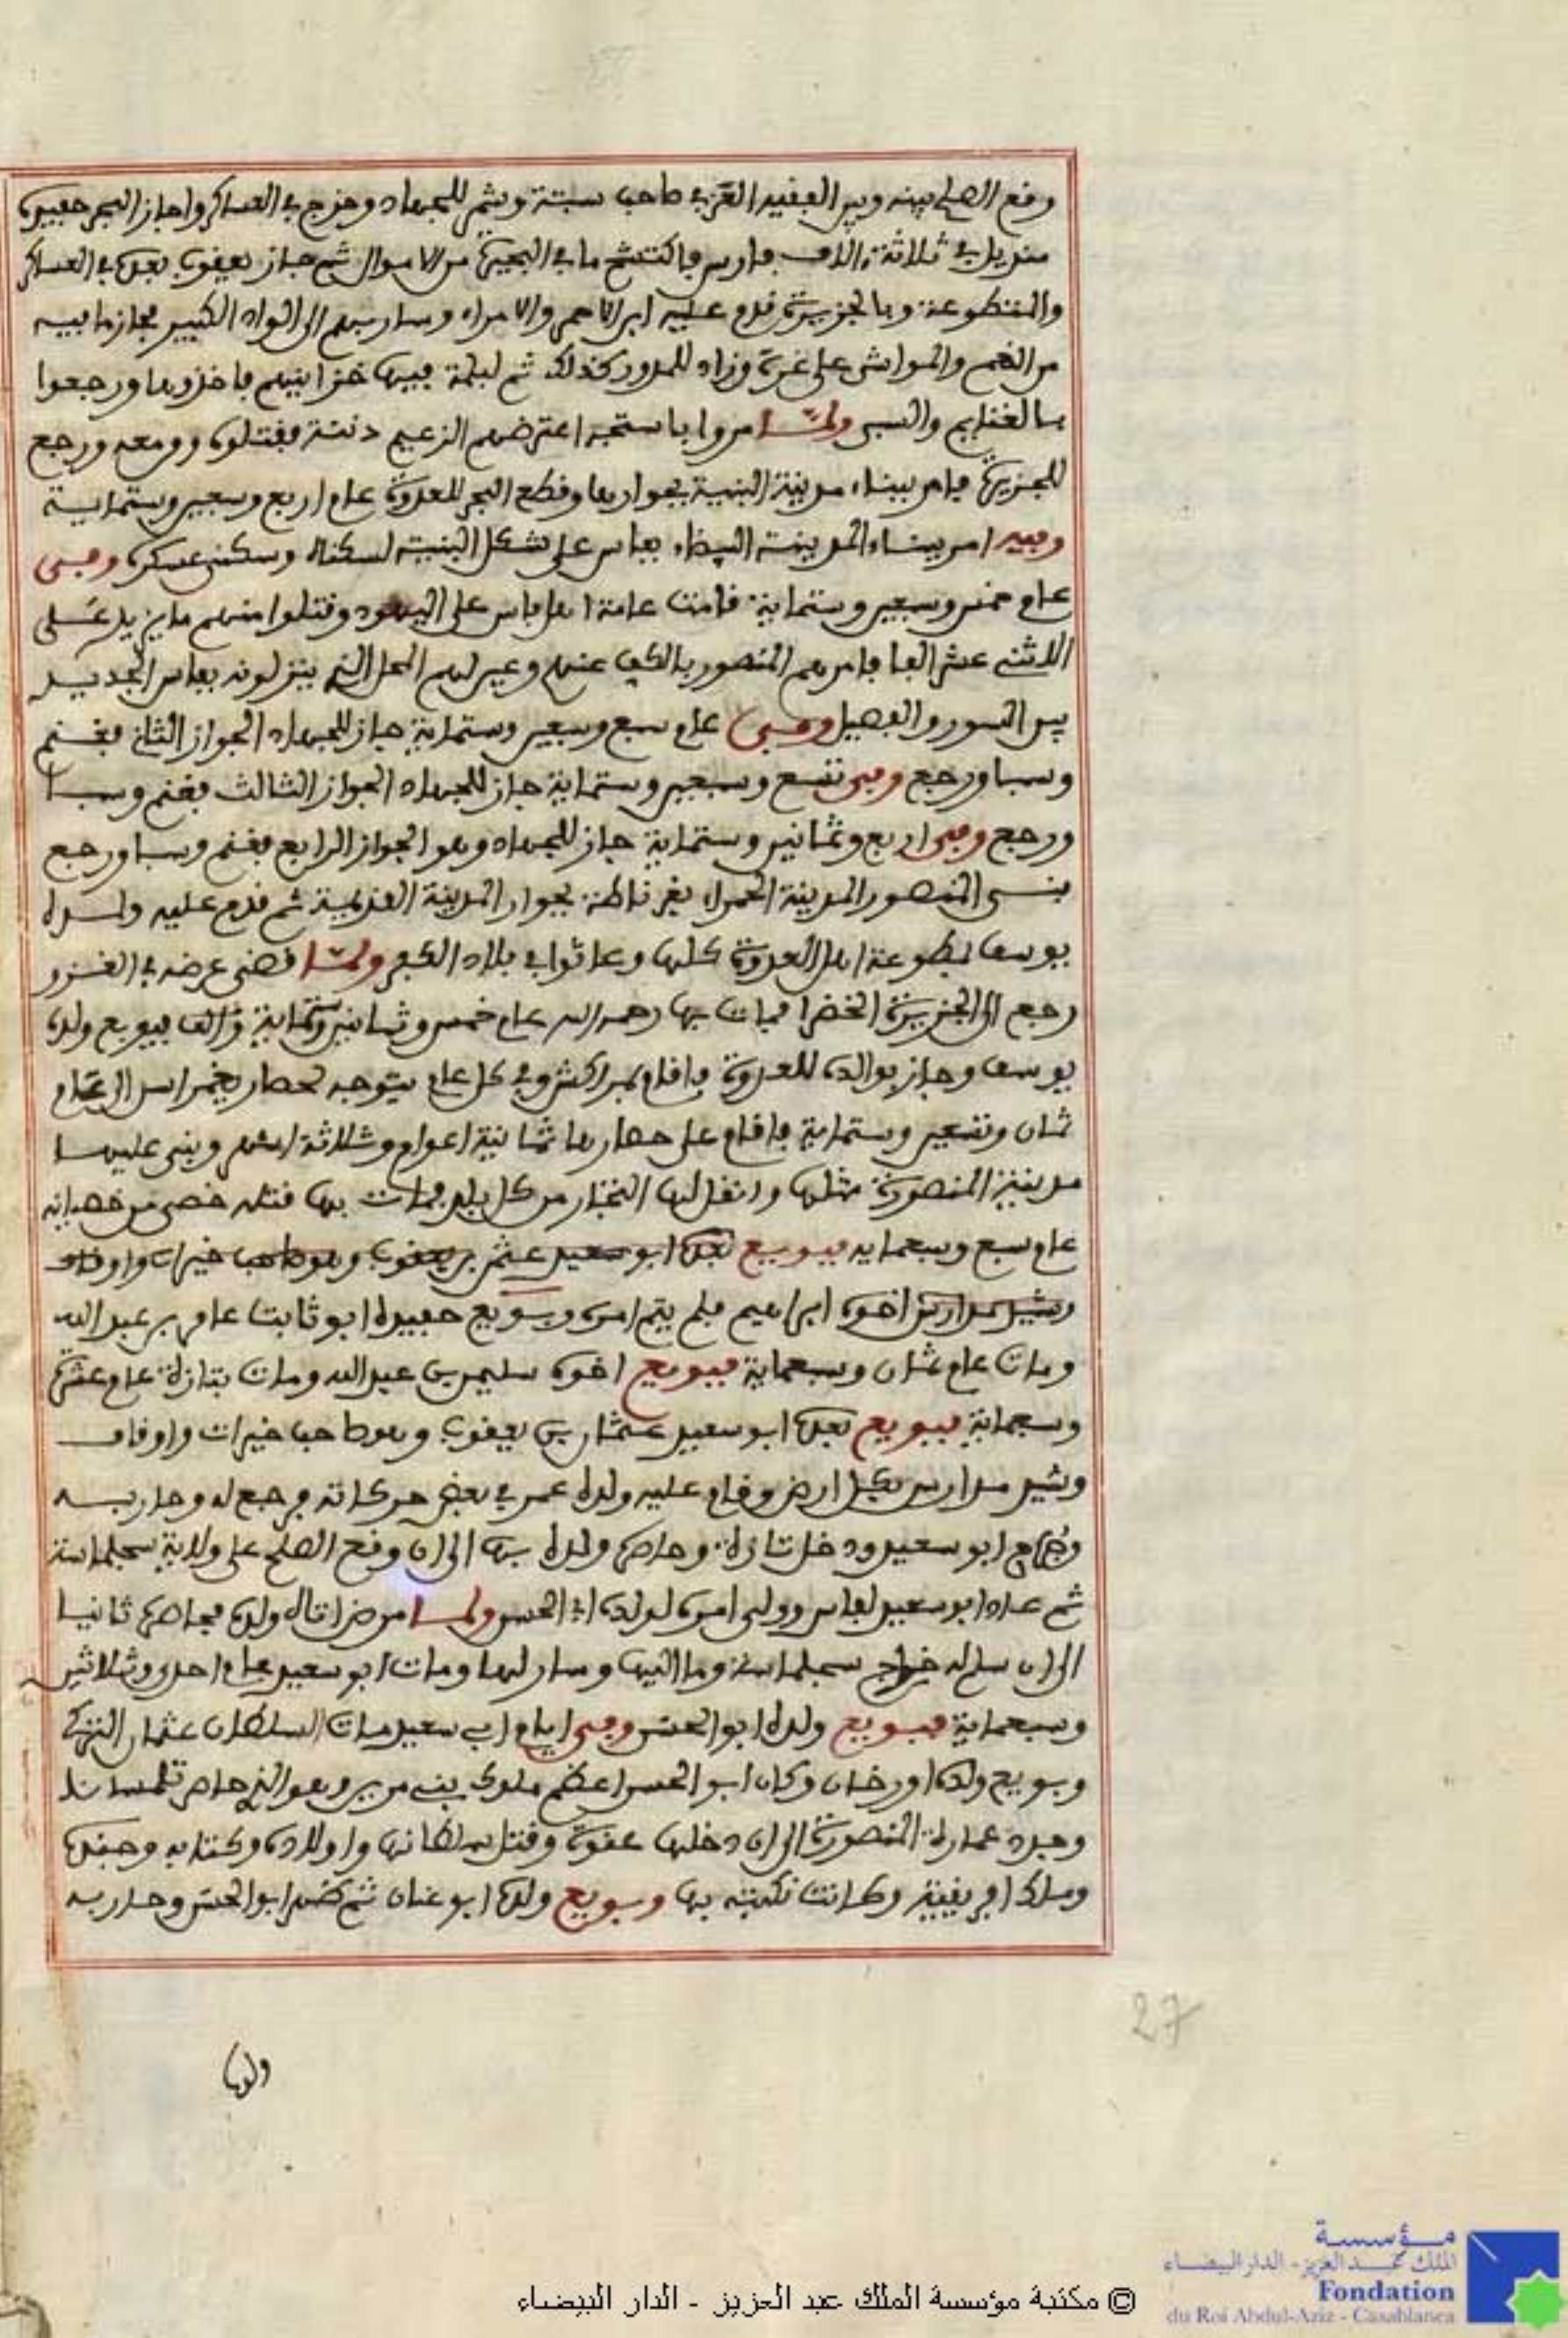 وقع الصلح بينه وبين الفقيه العزفي صاحب سبتة وشمر للجهاد وخرج في العساكر واجاز البحر حفيده
منديل في ثلاثة ءالاف فارس فاكتسح ما في البحيرة من الاموال ثم جاز يعقوب بعده في العساكر
والمتطوعة وبالجزيرة قدم عليه ابن الاحمر والامراء وسار بهم الى الواد الكبير فحاز ما فيه
من الغنم والمواشي على غرة وزاد للمدور كذلك ثم لبلمة فيها خزاينهم فاخذوها ورجعوا
بالغنايم والسبي ولما مروا باستجه اعترضهم الزعيم دننه فقتلوه ومن معه ورجع
للجزيرة فامر ببناء مدينة البنية بجوارها وقطع البحر للعدوة عام اربع وسبعين وستماية
وفيه امر ببناء المدينة البيضاء بفاس على شكل البنية لسكناه وسكنى عسكره وفي
عام خمس وسبعين وستماية قامت عامة اهل فاس على اليهود وقتلوا منهم ما يزيد على
الاثنى عشر الفا فامرهم المنصور بالكف عنهم وعين لهم المحل الذي ينزلونه بفاس الجديد
بين السور والفصيل وفي عام سبع وسبعين وستماية جاز للجهاد الجواز الثاني فغنم
وسبا ورجع وفي تسع وسبعين وستماية جاز للجهاد الجواز الثالث فغنم وسبا
ورجع وفي اربع وثمانين وستماية جاز للجهاد وهو الجواز الرابع فغنم وسبا ورجع
بنى المنصور المدينة الحمراء بغرناطة بجوار المدينة القديمة ثم قدم عليه ولده
يوسف بمطوعة اهل العدوة كلها وعاثوا في بلاد الكفر ولما قضى غرضه في الغزو
رجع الى الجزيرة الخضرا فمات بها رحمه الله عام خمس وثمانين وستماية فبويع ولده
يوسف وجاز بوالده للعدوة فاقام بمراكش وفي كل عام يتوجه لحصار يغمراسن الى عام
ثمان وتسعين وستماية فاقام على حصارها ثمانية اعوام وثلاثة اشهر وبنى عليها
مدينة المنصورة مثلها وانتقل لها التجار من كل بلد فمات بها قتله خصي من خصيانه
عام سبع وسبعماية فبويع بعده ابو سعيد عثمن بن يعقوب وهو صاحب خيرات واوقاف
وشيد مدارس اخوه ابراهيم فلم يتم امره وبويع حفيده ابو ثابت عامر بن عبد الله
ومات عام ثمان وسبعماية فبويع اخوه سليمن بن عبد الله ومات بتازة عام عشرة
وسبعماية فبويع بعده ابو سعيد عثمان بن يعقوب وهو صاحب خيرات واوقاف
وشيد مدارس بكل ارض وقام عليه ولده عمر في بعض حركاته فرجع له وحاربه
ابو سعيد ودخل تازة وحاصره ولده بها الى ان وقع الصلح على ولاية سجلماسة
ثم عاد ابو سعيد لفاس وولى امره لولده ابي الحسن ولما مرض اتاه ولده فحاصره ثانيا
الى ان سلم له خراج سجلماسة وما اليها وسار لها ومات ابو سعيد عام احدى وثلاثين
وسبعماية فبويع ولده ابو الحسن وفي ايام ابي سعيد مات السلطان عثمان التركي
وبويع ولده اورخان وكان ابو الحسن اعظم ملوك بني مرين وهو الذي حاصر تلمسان
وجدد عمارة المنصورة الى ان دخلها عنوة وقتل سلطانها واولاده وكتابه وجنده
وملك افريقية وكانت نكبته بها وبويع ولده ابو عنان ثم نهض ابو الحسن وحاربه
ولده
27
مؤسسة
الملك عبد العزيز - الدار البيضاء
Fondation
du Roi Abdul-Aziz - Casablanca
© مكتبة مؤسسة الملك عبد العزيز - الدار البيضاء